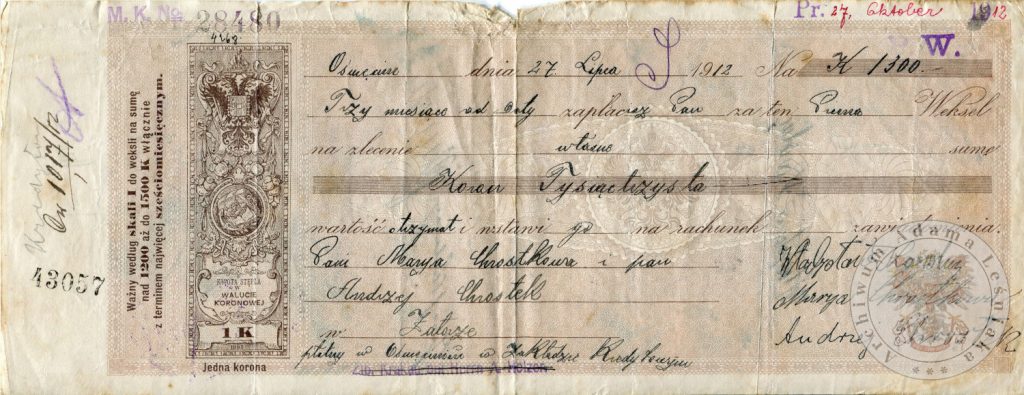 M. K. No. 28480
Pr. 27. Oktober 1912
W.
Ważny według skali I do weksli na sumę
nad 1200 aż do 1500 K włącznie
z terminem najwięcej sześciomiesięcznym.
43057
KWOTA STĘPLA
W
WALUCIE
KORONOWEJ
1 K
Jedna korona
dnia 27 Lipca 1912 Na K 1300.-
Trzy miesiące od daty zapłacisz Pan za ten Prima Weksel
na zlecenie własne sumę
Koron Tysiąctrzysta
wartość otrzymał i wstawi go na rachunek zawiadomienia.
Pani Marya Chrostkowa i pan
Andrzej Chrostek
w Zatorze
płatny w Oświęcimiu w Zakładzie Kredytowym
Władysław
Marya
Andrzej
Archiwum Adama Leśniaka